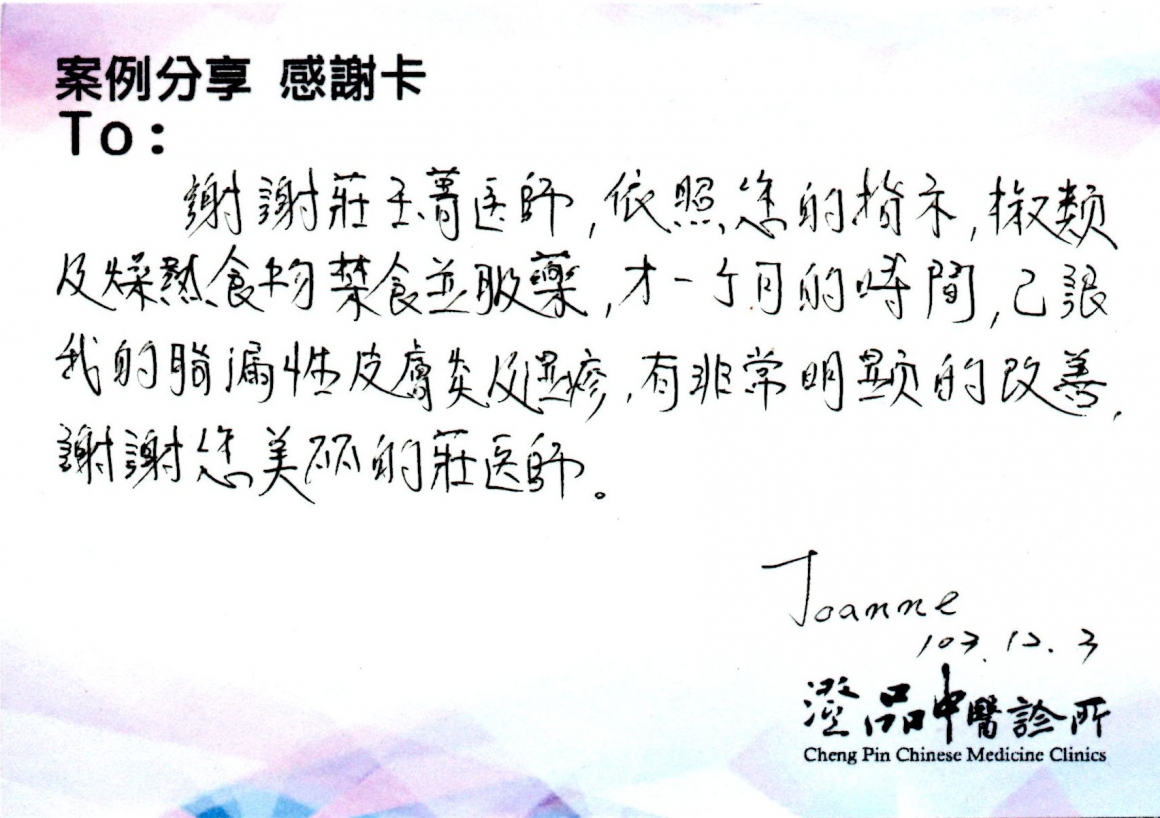 案例分享 感謝卡
To:
謝謝莊玉菁医師,依照您的指示,椒類
及燥熱食物禁食並服藥,才一个月的時間,已讓
我的脂漏性皮膚炎及濕疹,有非常明顯的改善,
謝謝您美丽的莊医師。
Joanne
103.12.3
澄品中醫診所
Cheng Pin Chinese Medicine Clinics